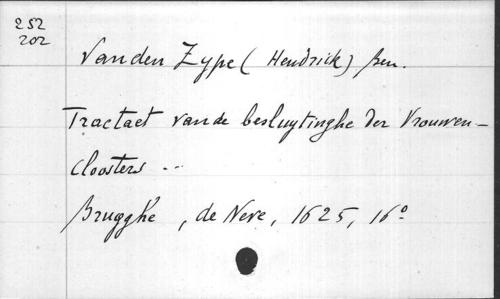 252
202
Vanden Zype (Hendrick) ben.
Tractaet vande besluytinghe der Vrouwen-
cloosters ...
Brugghe, de Neve, 1625, 16º